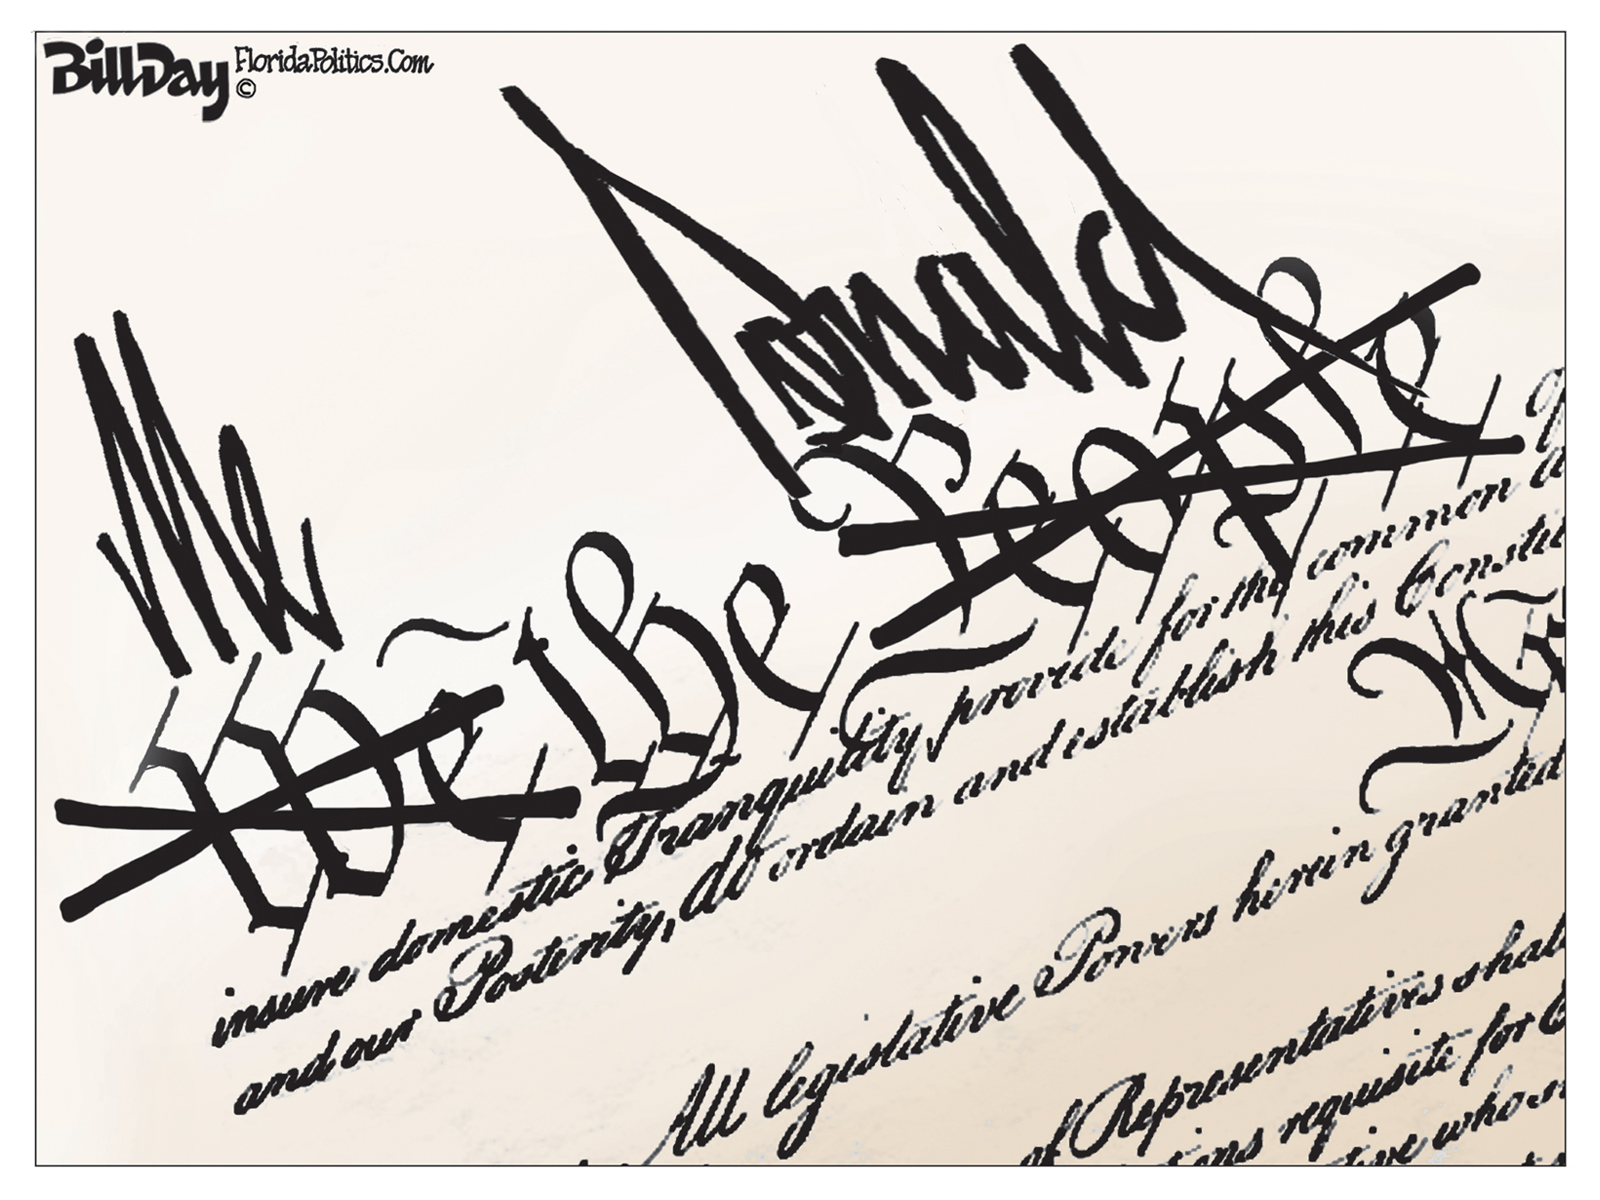 BillDay FloridaPolitics.Com
©
Me Donald
We the People
insure domestic Tranquility, provide for the common
and our Posterity, do ordain and establish this
All legislative Powers herein granted
of Representatives
requisite for
who